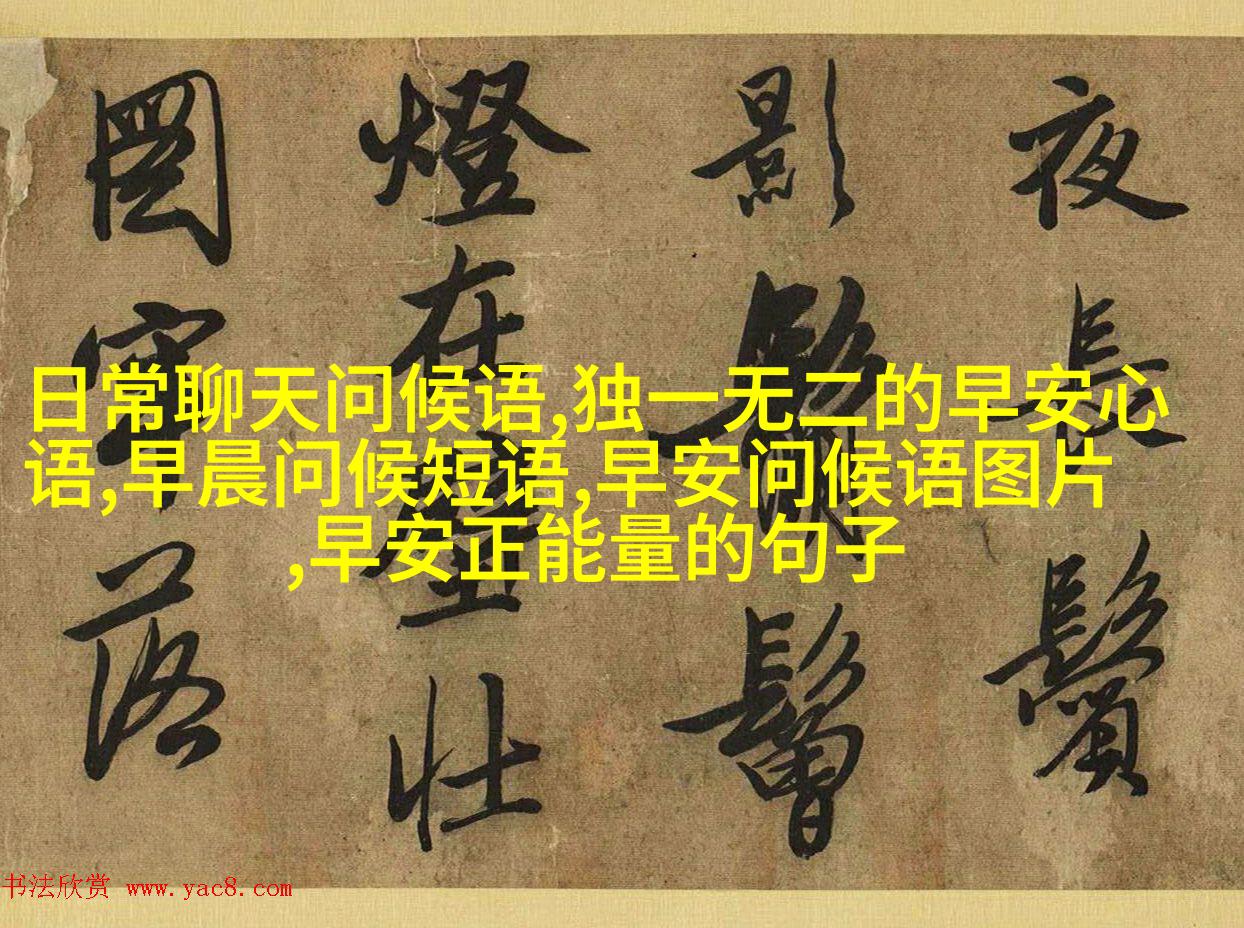 夜長鬢
影鬅鬙
燈在壁壯
圖牢落
日常聊天问候语,独一无二的早安心
语,早晨问候短语,早安问候语图片
,早安正能量的句子
书法欣赏 www.yac8.com